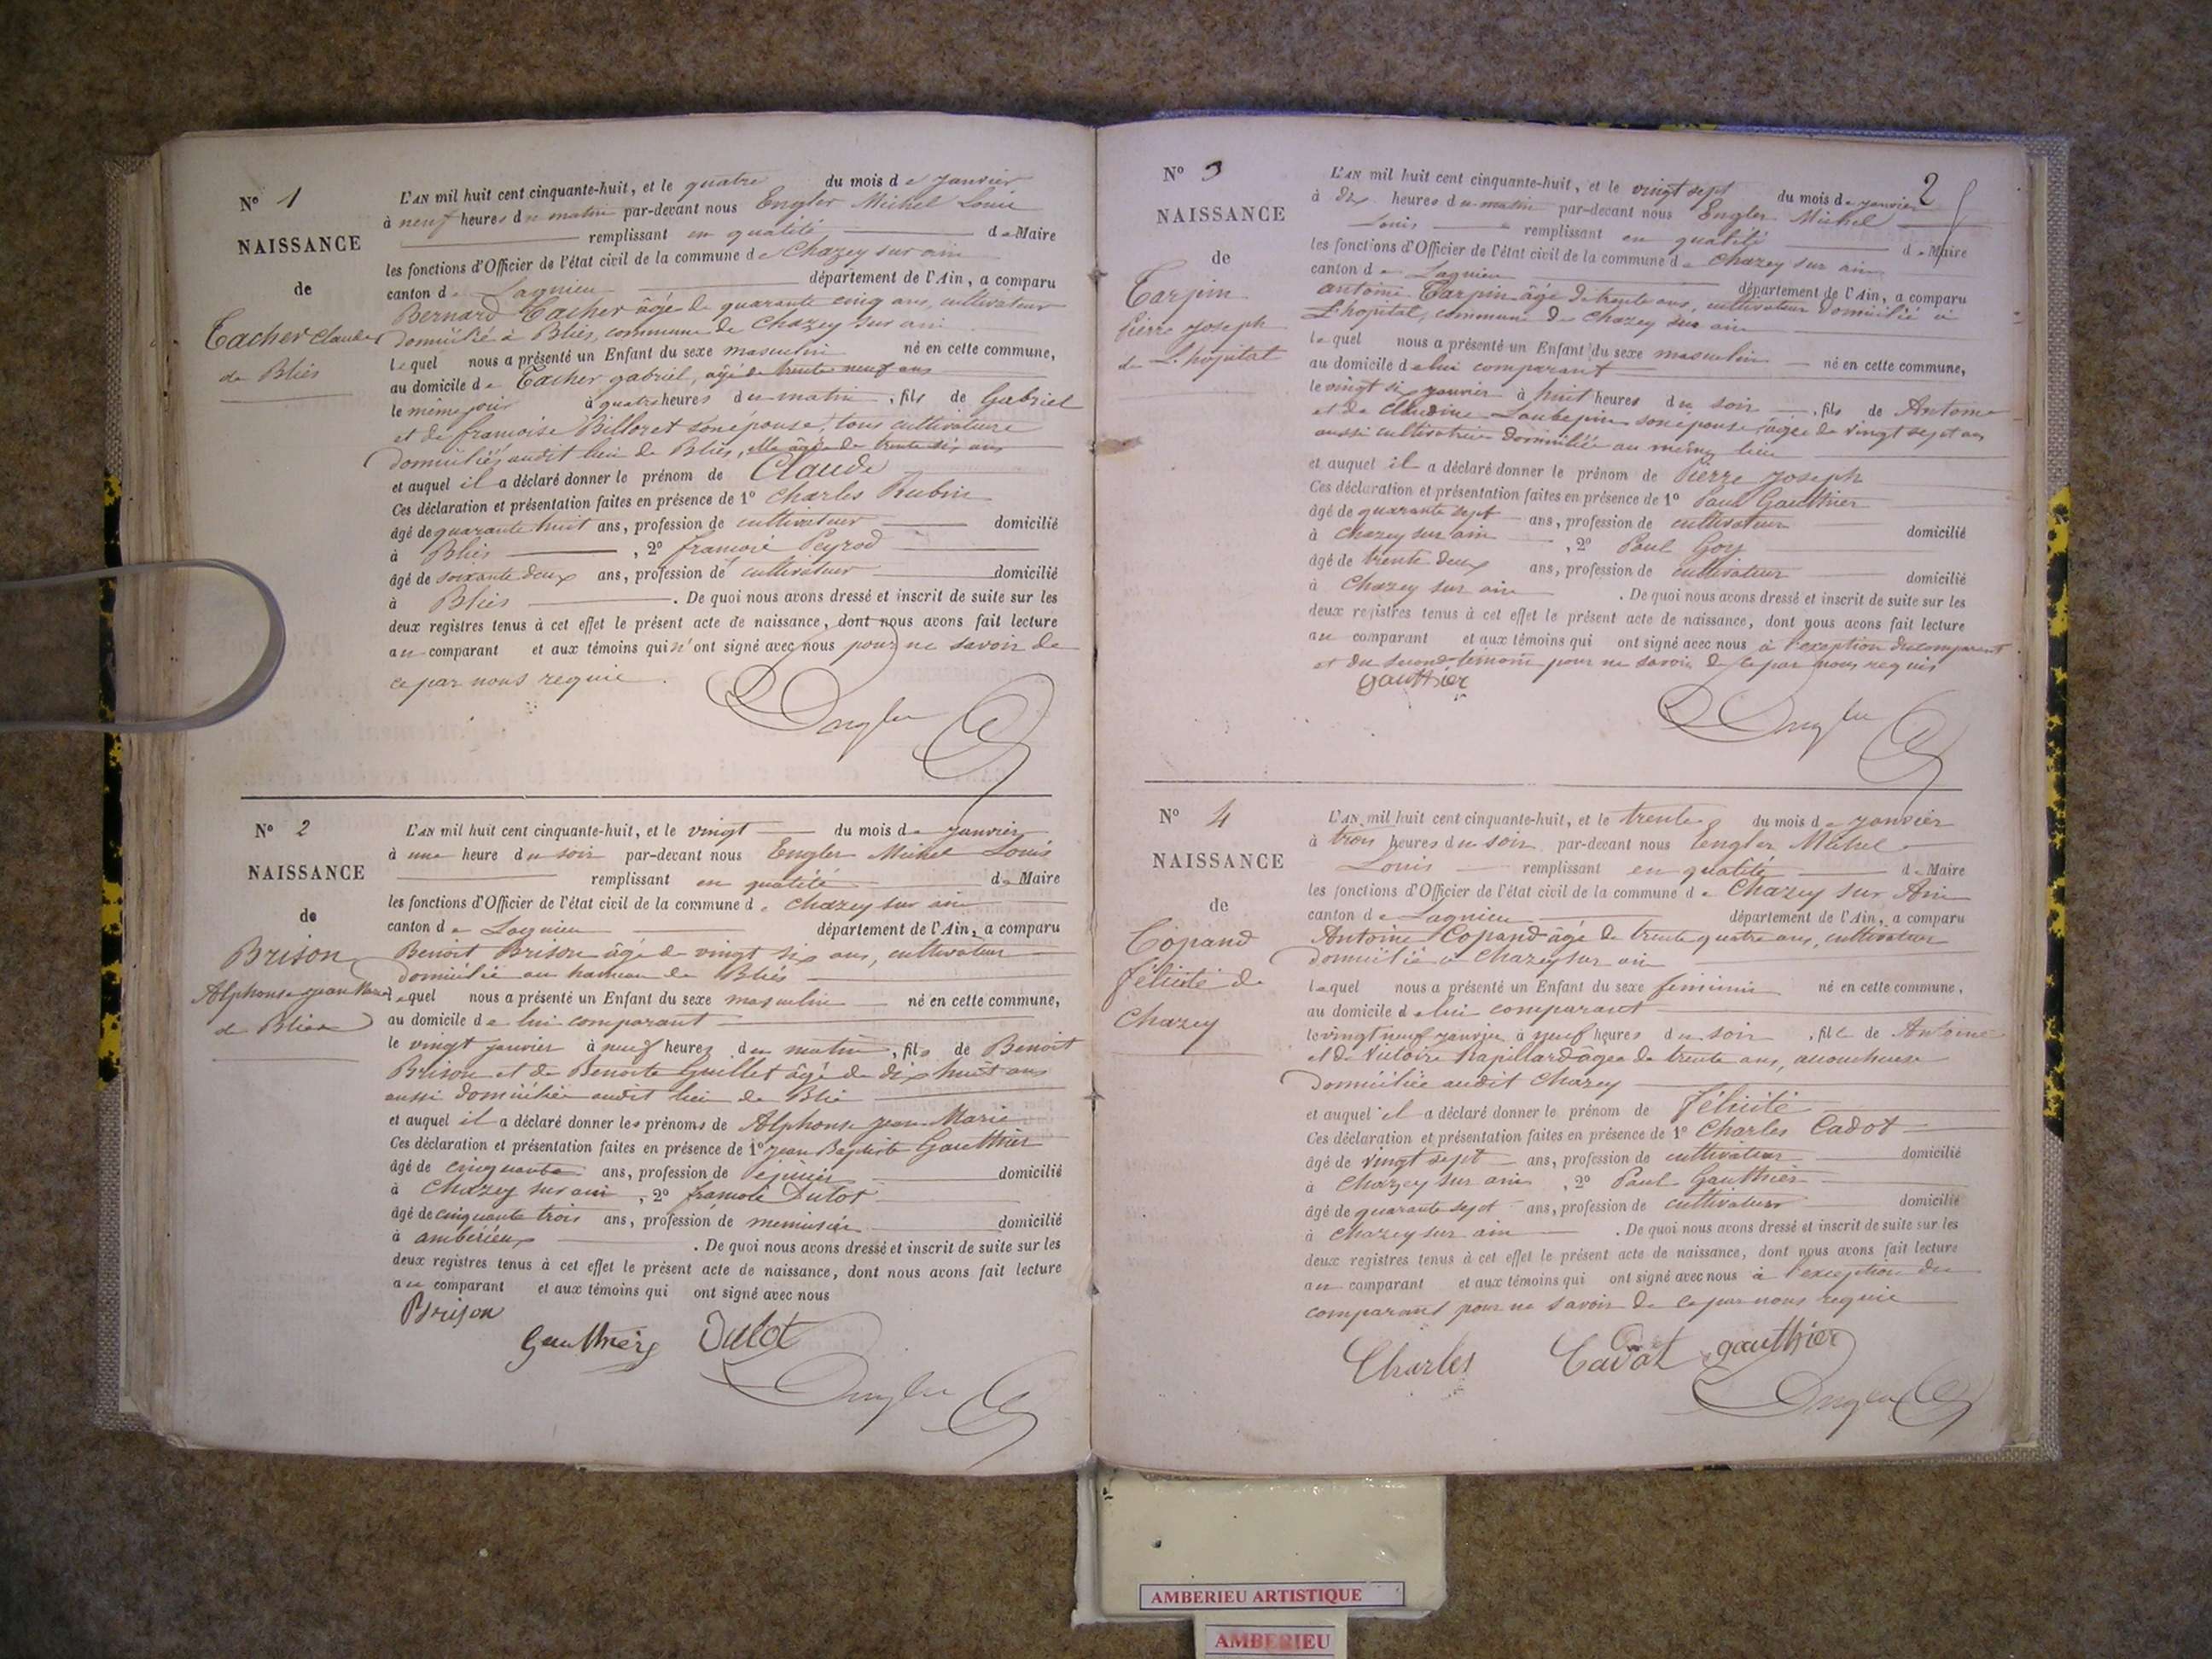 N° 1
NAISSANCE
de
Tacher Claude
de Bliés
L'AN mil huit cent cinquante-huit, et le quatre du mois de janvier
à neuf heures du matin par-devant nous Engler Michel Louis
remplissant en qualité de Maire
les fonctions d'Officier de l'état civil de la commune de Chazey sur ain
canton de Lagnieu département de l'Ain, a comparu
Bernard Tacher âgé de quarante cinq ans, cultivateur
domicilié à Bliés, commune de Chazey sur ain
lequel nous a présenté un Enfant du sexe masculin né en cette commune,
au domicile de Tacher gabriel, âgé de trente neuf ans
le même jour à quatre heures du matin, fils de Gabriel
et de françoise Billoret son épouse, tous cultivateurs
domiciliés audit lieu de Bliés, elle âgée de trente six ans
et auquel il a déclaré donner le prénom de Claude
Ces déclaration et présentation faites en présence de 1° Charles Rubin
âgé de quarante huit ans, profession de cultivateur domicilié
à Bliés, 2° françois Peyrod
âgé de soixante deux ans, profession de cultivateur domicilié
à Bliés. De quoi nous avons dressé et inscrit de suite sur les
deux registres tenus à cet effet le présent acte de naissance, dont nous avons fait lecture
au comparant et aux témoins qui n'ont signé avec nous pour ne savoir de
ce par nous requis.
N° 2
NAISSANCE
de
Brison
Alphonse jean Marie
de Bliés
L'AN mil huit cent cinquante-huit, et le vingt du mois de janvier
à une heure du soir par-devant nous Engler Michel Louis
remplissant en qualité de Maire
les fonctions d'Officier de l'état civil de la commune de Chazey sur ain
canton de Lagnieu département de l'Ain, a comparu
Benoit Brison âgé de vingt six ans, cultivateur
domicilié au hameau de Bliés
lequel nous a présenté un Enfant du sexe masculin né en cette commune,
au domicile de lui comparant
le vingt janvier à neuf heures du matin, fils de Benoit
Brison et de Benoite Guillet âgé de dix huit ans
aussi domiciliée audit lieu de Blié
et auquel il a déclaré donner les prénoms de Alphonse jean Marie
Ces déclaration et présentation faites en présence de 1° jean Baptiste Gauthier
âgé de cinquante ans, profession de domicilié
à Chazey sur ain, 2° françois Dulot
âgé de cinquante trois ans, profession de menuisier domicilié
à ambérieux. De quoi nous avons dressé et inscrit de suite sur les
deux registres tenus à cet effet le présent acte de naissance, dont nous avons fait lecture
au comparant et aux témoins qui ont signé avec nous
Brison
Gauthier Dulot
2
N° 3
NAISSANCE
de
Tarpin
pierre joseph
de L'hopital
L'AN mil huit cent cinquante-huit, et le vingt sept du mois de janvier
à dix heures du matin par-devant nous Engler Michel
Louis remplissant en qualité de Maire
les fonctions d'Officier de l'état civil de la commune de Chazey sur ain
canton de Lagnieu département de l'Ain, a comparu
antoine Tarpin âgé de trente ans, cultivateur domicilié à
L'hopital, commune de Chazey sur ain
lequel nous a présenté un Enfant du sexe masculin né en cette commune,
au domicile de lui comparant
le vingt six janvier à huit heures du soir, fils de Antoine
et de Claudine Loubepin son épouse âgée de vingt sept ans
aussi cultivatrice domiciliée au même lieu
et auquel il a déclaré donner le prénom de Pierre joseph
Ces déclaration et présentation faites en présence de 1° Paul Gauthier
âgé de quarante sept ans, profession de cultivateur domicilié
à Chazey sur ain, 2° Paul Goy
âgé de trente deux ans, profession de cultivateur domicilié
à Chazey sur ain. De quoi nous avons dressé et inscrit de suite sur les
deux registres tenus à cet effet le présent acte de naissance, dont nous avons fait lecture
au comparant et aux témoins qui ont signé avec nous à l'exception du comparant
et du second témoin pour ne savoir de ce par nous requis
gauthier
N° 4
NAISSANCE
de
Copand
félicité de
Chazey
L'AN mil huit cent cinquante-huit, et le trente du mois de janvier
à trois heures du soir par-devant nous Engler Michel
Louis remplissant en qualité de Maire
les fonctions d'Officier de l'état civil de la commune de Chazey sur Ain
canton de Lagnieu département de l'Ain, a comparu
Antoine Copand âgé de trente quatre ans, cultivateur
domicilié à Chazey sur ain
lequel nous a présenté un Enfant du sexe féminin né en cette commune,
au domicile de lui comparant
le vingt neuf janvier à neuf heures du soir, fille de Antoine
et de Victoire Rapillard âgée de trente ans, accoucheuse
domiciliée audit Chazey
et auquel il a déclaré donner le prénom de félicité
Ces déclaration et présentation faites en présence de 1° Charles Cadot
âgé de vingt sept ans, profession de cultivateur domicilié
à Chazey sur ain, 2° Paul Gauthier
âgé de quarante sept ans, profession de cultivateur domicilié
à Chazey sur ain. De quoi nous avons dressé et inscrit de suite sur les
deux registres tenus à cet effet le présent acte de naissance, dont nous avons fait lecture
au comparant et aux témoins qui ont signé avec nous à l'exception du
comparant pour ne savoir de ce par nous requis
Charles Cadot gauthier
AMBERIEU ARTISTIQUE
AMBERIEU